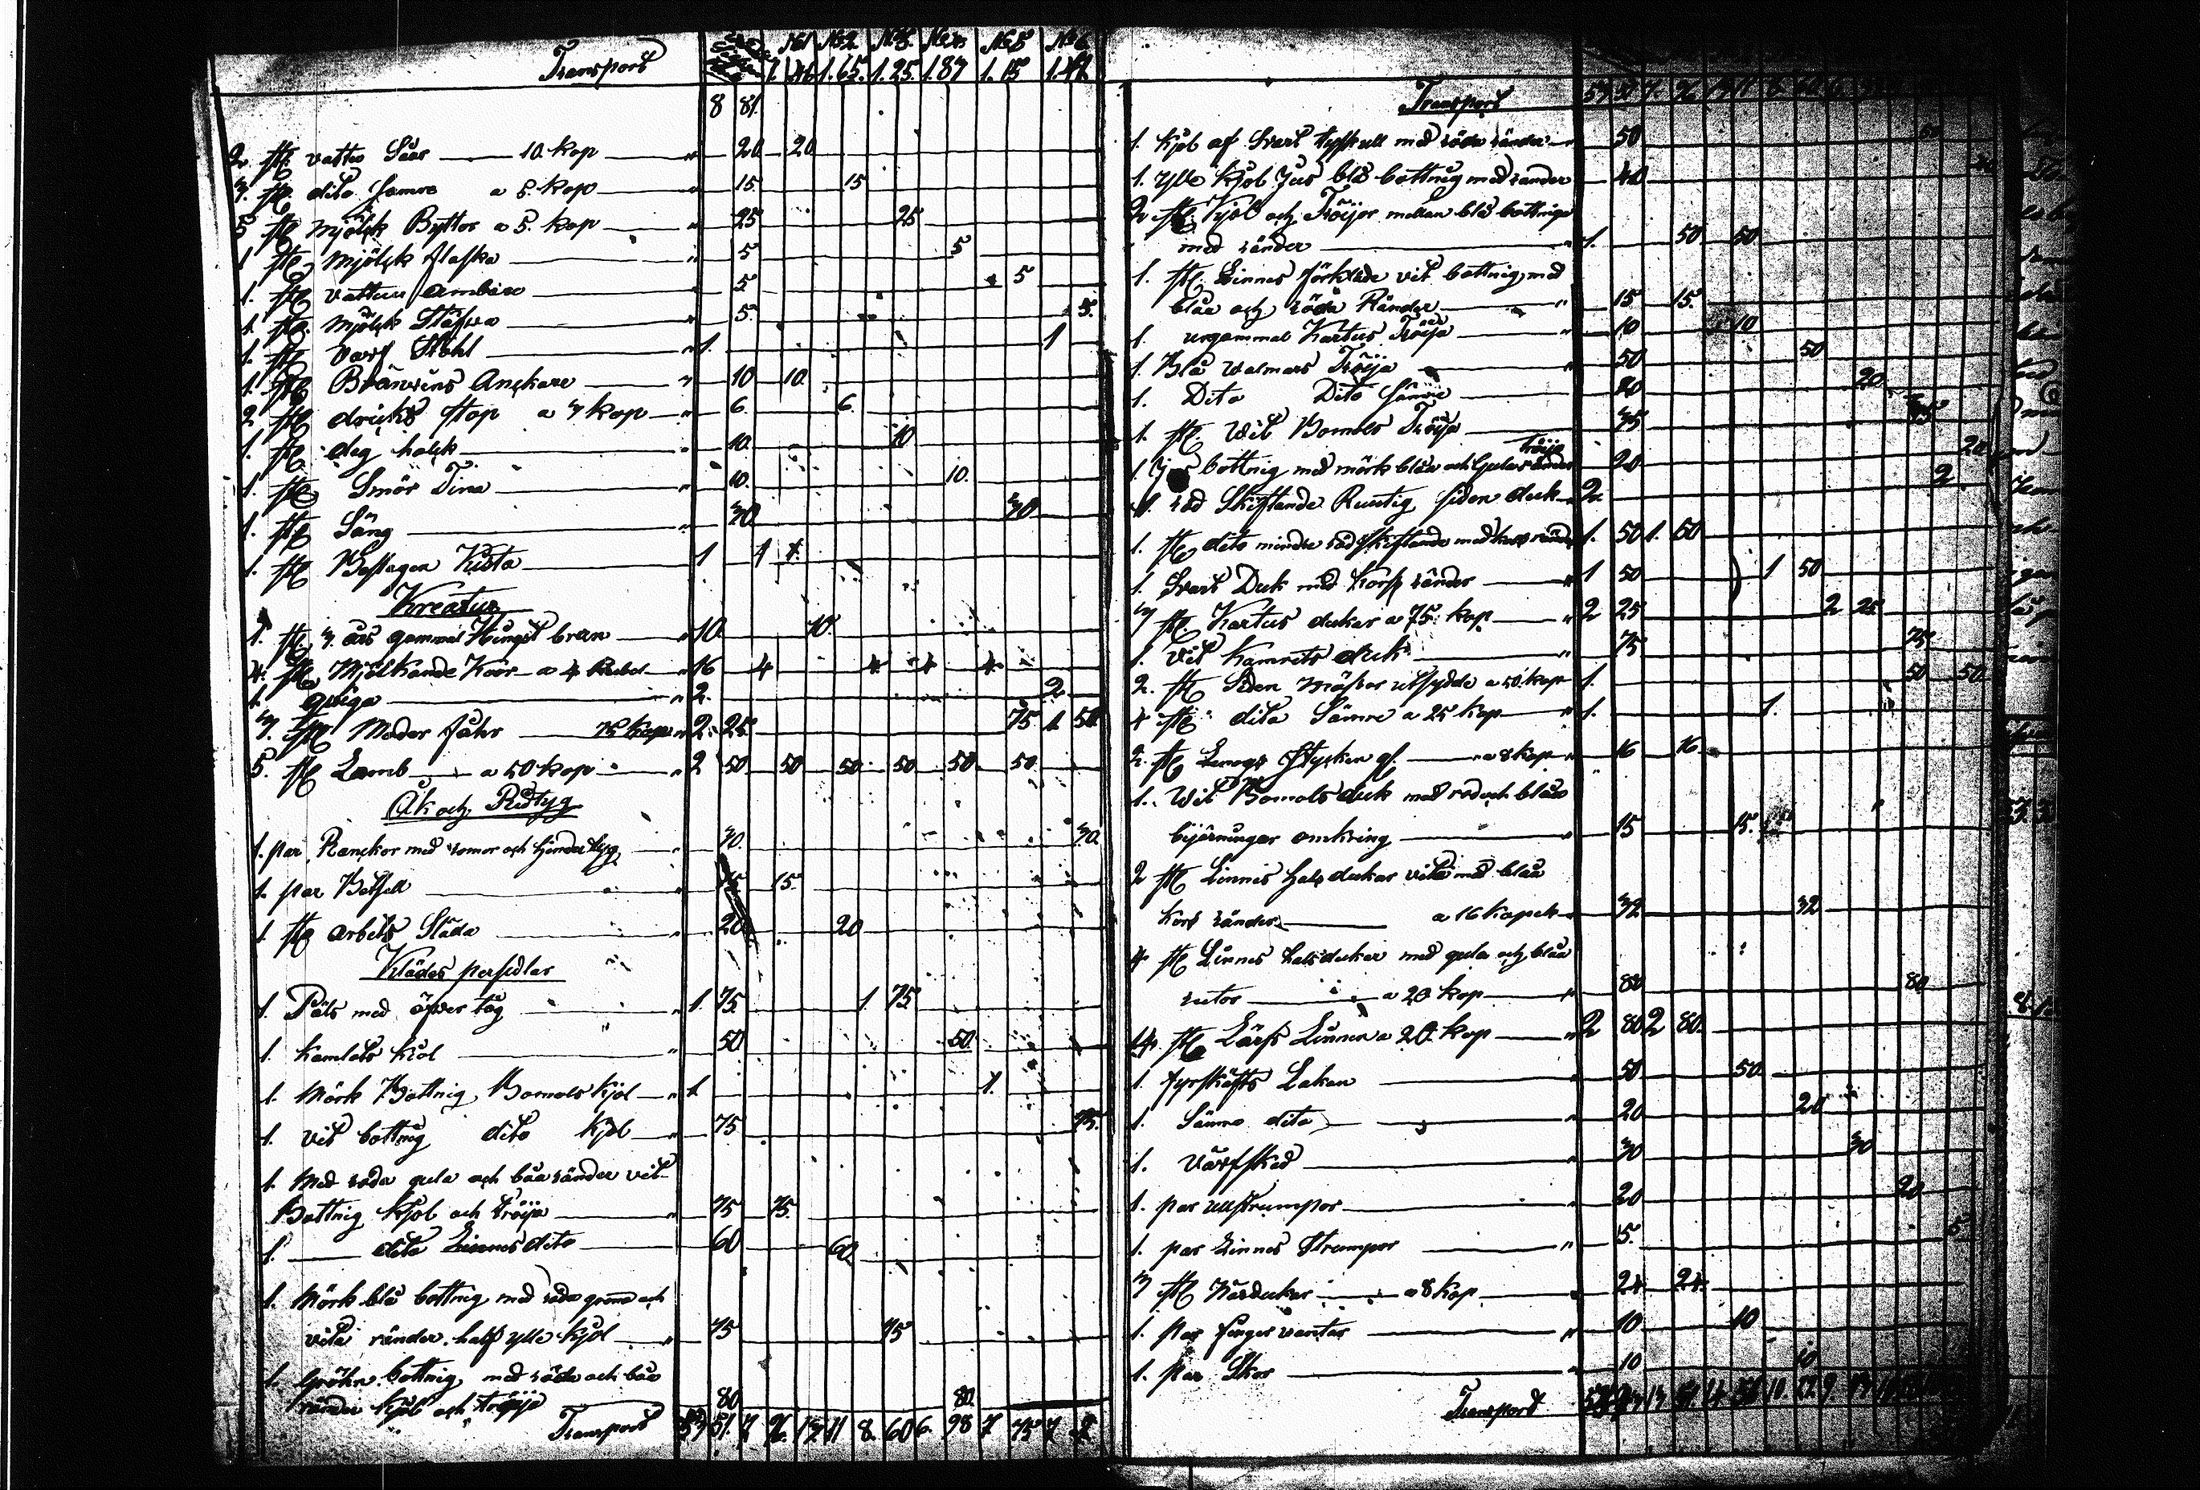 Transport N1 N2 N3 N4 N5 N6
1. 1.65. 1.25. 1.87 1. 15 1.41
8 81.
2. st. vatten Såar 10. kop " 20 20
3. st. dito Samre a 5. kop " 15 15
5 st. Mjölck Byttor a 5. kop " 25 25
1 st. Mjölck flaska " 5 5
1. st. vatten ambare " 5 5
1. st. Mjölck Stäfva " 5. 5.
1. st. Varf Stohl " 1. 1
1. st. Bränvins Anckare " 10 10.
2 st. dricks stop a 3 kop " 6. 6.
1. st. deg holck " 10. 10
1. st. Smör Tina " 10. 10.
1. st. Säng " 30 30
1. st. Beslagen Kista 1 1
Kreatur
1. st. 3 års gammal Hingst brun " 10. 10.
4. st. Mjölkande Koor a 4 Rubel " 16 4 4 4 4
1. qviga " 2. 2
3. st. Moder fåhr 75 kop " 2. 25. 75 1 50
5. st. Lamb a 50 kop " 2 50 50 50 50 50 50
Åk och Redtyg
1. par Ranckor med romor och hinder tyg 30. 30.
1. par Betsell " 15 15.
1 st. arbets Släda " 20 20
Klädes persedlar
1. Päls med öfver tåg " 1. 75. 1 75.
1. Kamlots kiol " 50 50.
1. Mörk Bottnig Bomols kjol " 1 1.
1. vit bottnig dito kjol " 75 75.
1. Med röda gula och båa ränder vit
Bottnig kjol och tröija " 75 75.
1. dito Linnes dito " 60 60
1. Mörk blå bottnig med röda gröna och
vita ränder half ylle kjol " 75 75.
1. Gröhn bottnig med röda och båa
ränder kjol och tröija 80 80.
Transport 53 51. 7 96. 13 11 8. 60 6. 98 7 75 7
Transport
1. kjol af Svart tyskull med röda ränder " 50
1. ylle kjol Jus blå bottnig med ränder " 40
2 st. kjol och Tröijor mellan blå bottniga
med ränder " 1. 50 50
1. st. Linnes förkläde vit bottnig med
blåa och röda Ränder " 15 15.
1. urgammal Kartus Tröija " 10 10
1. Blå valmars Tröija " 50 50
1. Dito Dito Sämre " 20 20
1. st. Wit Bomols Tröija " 35 35
tröija
1. Jus bottnig med mörk blåa och Gula ränder 20 20
1. röd Skiftande Ruutig siden duk " 2. 2
1. st. dito mindre röd skiftande med kors ränd 1. 50 1. 50
1. Svart Duk med kors ränder " 1 50 1 50
3 st. Kartus dukar a 75 kop " 2 25 2 25
1. vit kamrits duk " 75 75
2. st. Siden mössor utsydde a 50. kop 1. 50 50.
4 st. dito Sämre a 25 kop " 1. 1.
2. st. Lenogs Stycken a 8 kop " 16 16.
1. Wit Bomols duk med röd och blåa
bijörningar omkring " 15 15.
2 st. Linnis hals dukar vita med blåa
kors ränder a 16 kopek 32 32
4 st. Linnes halsdukar med gula och blåa
rutor a 20 kop " 80 80
14. st. Lärfs Linnen a 20. kop " 2 80 2 80.
1. fyrskäfts Lakan " 50 50
1. Sämre dito " 20 20
1. Värfsked " 30 30
1. par ullstrumpor " 20 20
1. par Linnes Strumpor " 5. 5
3 st. Näsdukar a 8 kop 24 24.
1. par finger vantar " 10 10
1. par Skor " 10 10
Transport